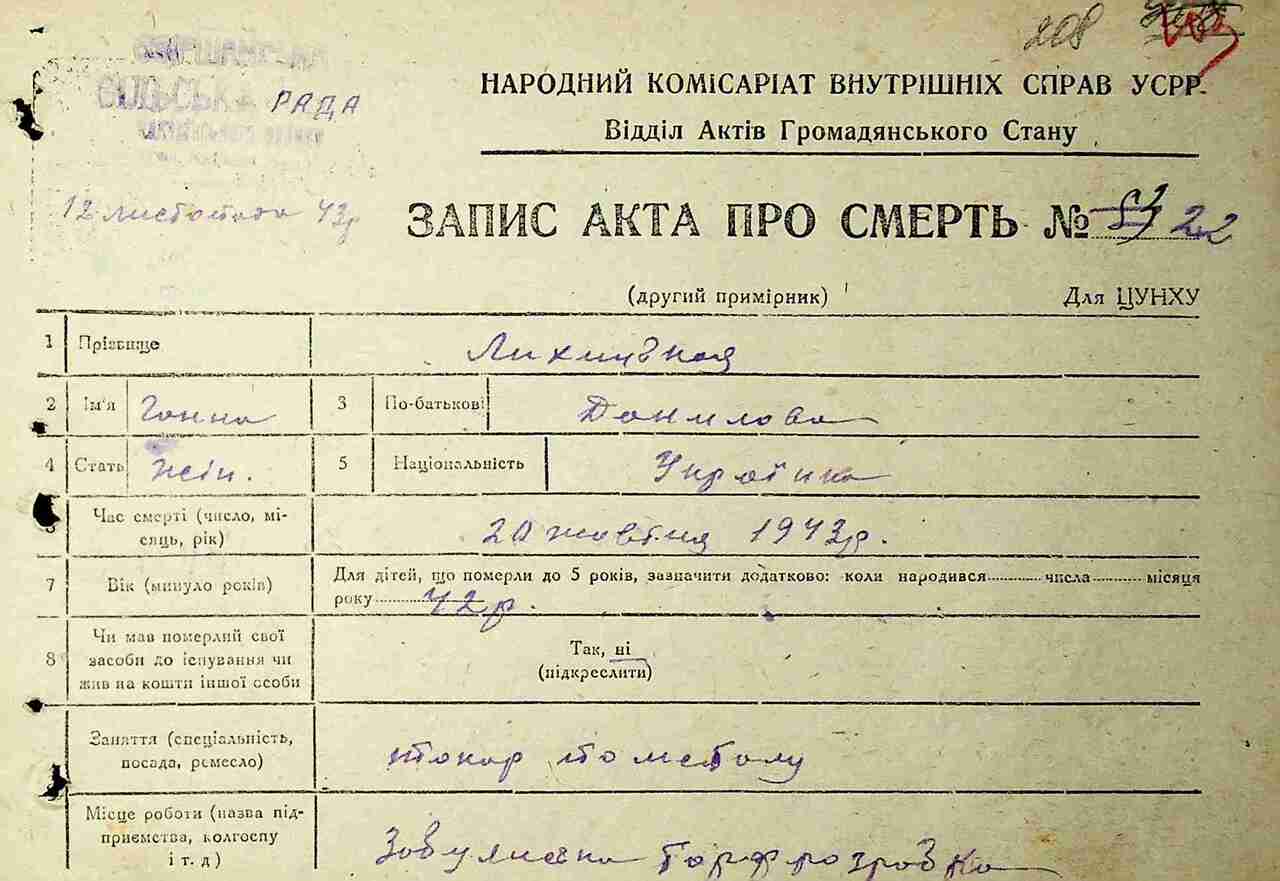 208
СІЛЬСЬКА РАДА
НАРОДНИЙ КОМІСАРІАТ ВНУТРІШНІХ СПРАВ УСРР.
Відділ Актів Громадянського Стану
12 листопада 43р
ЗАПИС АКТА ПРО СМЕРТЬ № 22
(другий примірник) Для ЦУНХУ
1 Прізвище
2 Ім'я Ганна 3 По-батькові Данилова
4 Стать жін. 5 Національність Українка
Час смерті (число, мі-
сяць, рік) 20 жовтня 1943р.
7 Вік (минуло років) Для дітей, що померли до 5 років, зазначити додатково: коли народився числа місяця
року 42р.
Чи мав померлий свої
8 засоби до існування чи Так, ні
жив на кошти іншої особи (підкреслити)
Заняття (спеціальність,
посада, ремесло) токар по металу
Місце роботи (назва під-
приємства, колгоспу
і т. д)